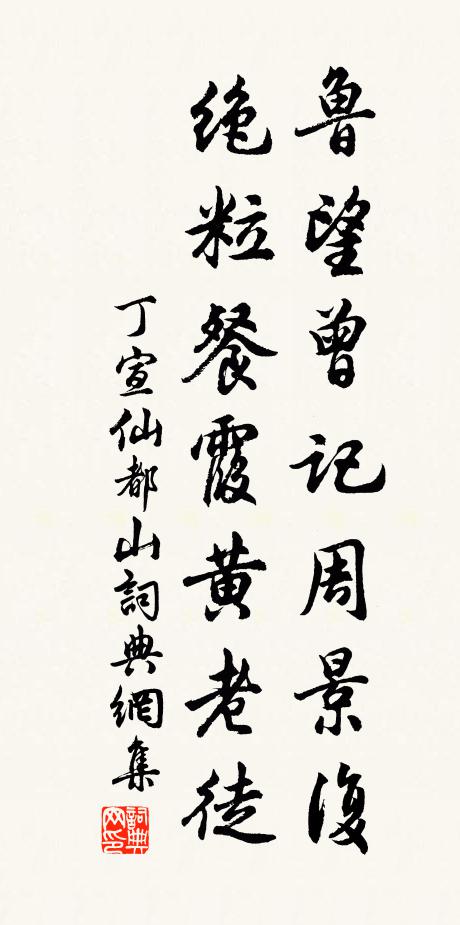 魯望曾記周景復
絶粒餐霞黄老徒
丁宣仙都山詞典網集
詞典网印